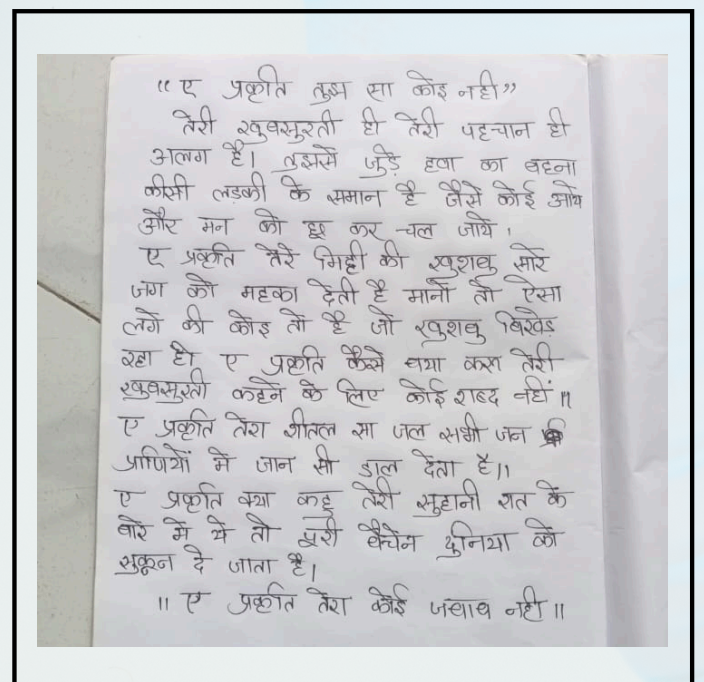 “ए प्रकृति तुझ सा कोइ नही”
तेरी खुबसुरती ही तेरी पहचान ही
अलग है। तुझसे जुड़े हवा का बहना
कीसी लड़की के समान है जैसे कोई आये
और मन को छू कर चल जाये।
ए प्रकृति तेरे मिट्टी की खुशबु सारे
जग को महका देती है मानो तो ऐसा
लगे की कोइ तो है जो खुशबु बिखेड़
रहा हो ए प्रकृति कैसे बया करू तेरी
खुबसुरती कहने के लिए कोई शब्द नहीं॥
ए प्रकृति तेरा शीतल सा जल सभी जन
प्राणियों मे जान सी डाल देता है॥
ए प्रकृति क्या कहु तेरी सुहानी रात के
बारे मे ये तो पुरी बैचेन दुनिया को
सुकून दे जाता है।
॥ ए प्रकृति तेरा कोई जवाब नही ॥